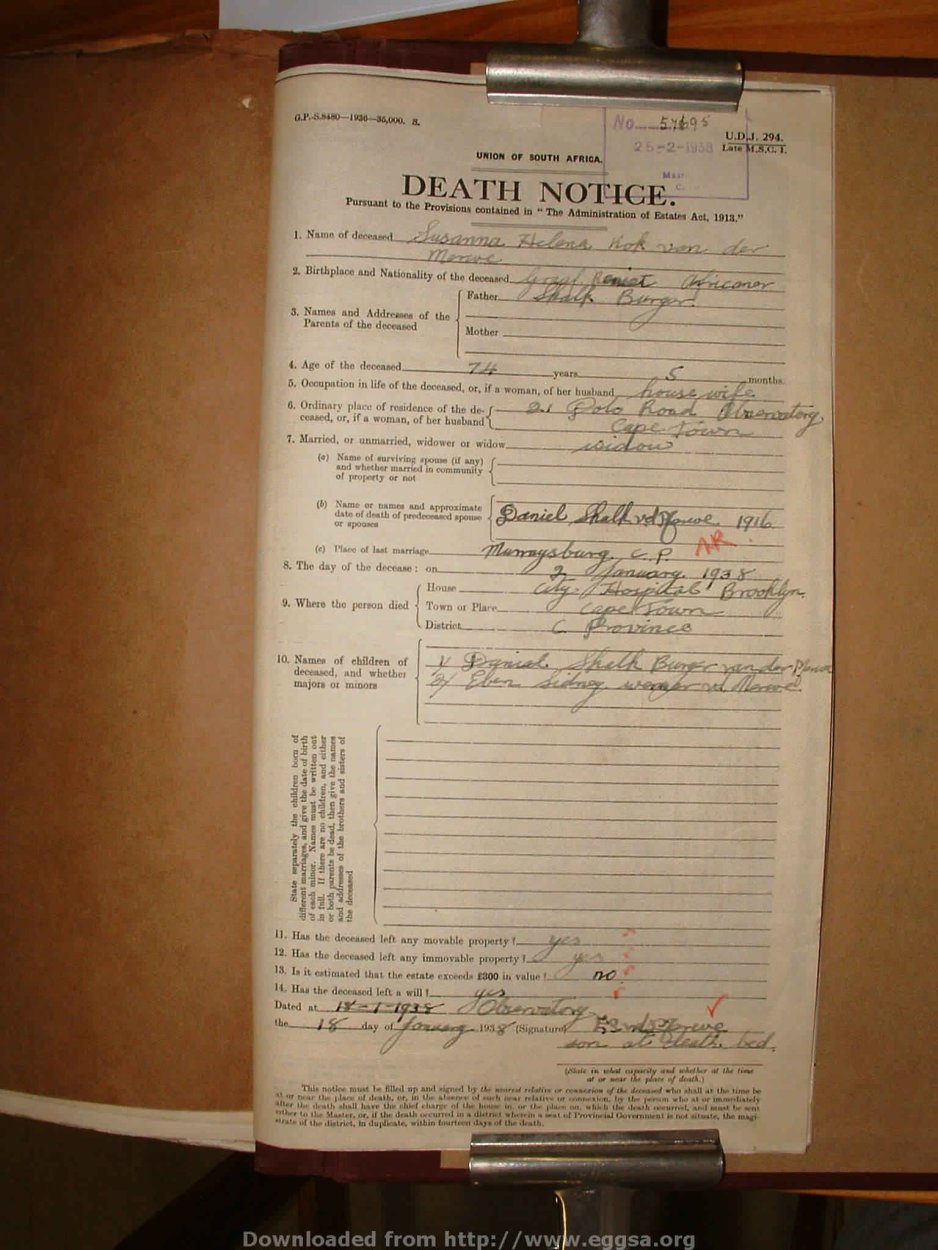 G.P.-S.8480—1936—35,000. S.
No. 57695
U.D.J. 294.
25-2-1938 Late M.S.C. I.
UNION OF SOUTH AFRICA.
DEATH NOTICE.
Pursuant to the Provisions contained in "The Administration of Estates Act, 1913."
1. Name of deceased Susanna Helena Kok van der
Merwe
2. Birthplace and Nationality of the deceased Graaf Reniet Africaner
3. Names and Addresses of the Parents of the deceased
Father Shalk Burger.
Mother
4. Age of the deceased 74 years 5 months.
5. Occupation in life of the deceased, or, if a woman, of her husband house wife
6. Ordinary place of residence of the de- 21 Polo Road Observatory
ceased, or, if a woman, of her husband Cape Town
7. Married, or unmarried, widower or widow widow
(a) Name of surviving spouse (if any)
and whether married in community
of property or not
(b) Name or names and approximate
date of death of predeceased spouse Daniel Shalk vd Merwe 1916
or spouses
(c) Place of last marriage Murraysburg. C.P.
8. The day of the decease: on 2 January 1938
9. Where the person died
House City Hospital Brooklyn.
Town or Place Cape Town
District C Province
10. Names of children of 1/ Daniel Shalk Burger van der Merwe
deceased, and whether 2/ Eben Sidney v. Merwe.
majors or minors
State separately the children born of
different marriages, and give the date of birth
of each minor. Names must be written out
in full. If there are no children, and either
or both parents be dead, then give the names
and addresses of the brothers and sisters of
the deceased
11. Has the deceased left any movable property? yes
12. Has the deceased left any immovable property? yes
13. Is it estimated that the estate exceeds £300 in value? no
14. Has the deceased left a will? yes
Dated at 18-1-1938 Observatory
the 18 day of January 1938 (Signature) E S vd Merwe
son at death bed.
(State in what capacity and whether at the time
at or near the place of death.)
This notice must be filled up and signed by the nearest relative or connexion of the deceased who shall at the time be
at or near the place of death, or, in the absence of such near relative or connexion, by the person who at or immediately
after the death shall have the chief charge of the house in, or the place on, which the death occurred, and must be sent
either to the Master, or, if the death occurred in a district wherein a seat of Provincial Government is not situate, the magi-
strate of the district, in duplicate, within fourteen days of the death.
Downloaded from http://www.eggsa.org